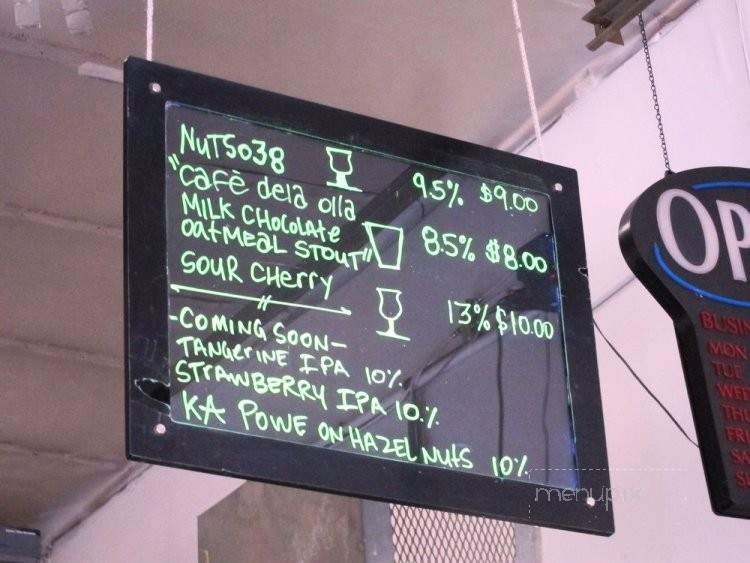 NUTSO38 9.5% $9.00
"café dela olla
MILK CHOCOLATE
OATMEAL STOUT" 8.5% $8.00
SOUR CHERRY
13% $10.00
-COMING SOON-
TANGERINE IPA 10%
STRAWBERRY IPA 10.%
KA POWE ON HAZEL NUTS 10%
OP
BUSI
MON
TUE
WED
TH
FR
SA
SU
menupix